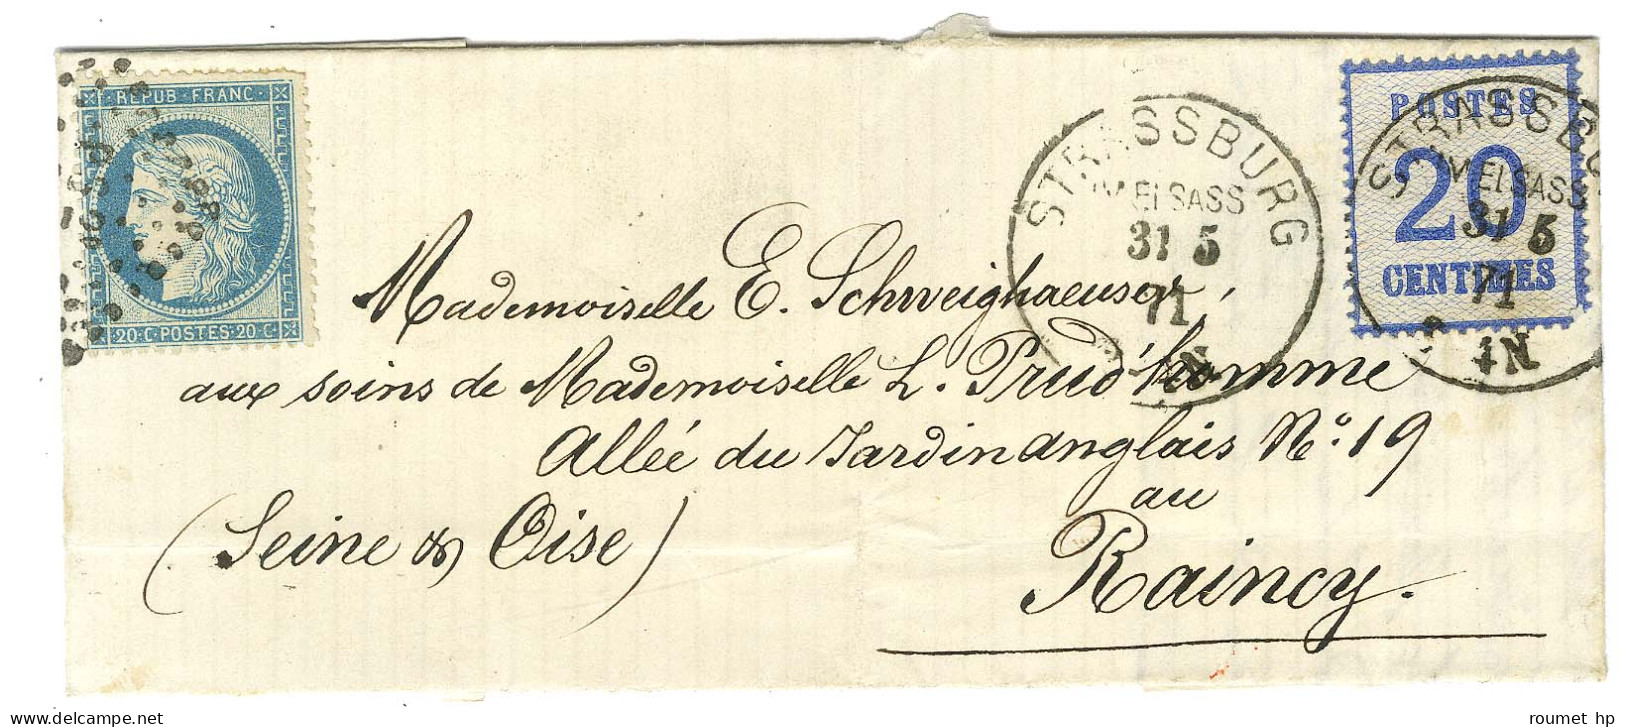 REPUB·FRANC·
20·C·POSTES·20·C
STRASSBURG
IM ELSASS
31 5
71
POSTES
20
CENTIMES
STRASSBU
IM ELSASS
31 5
71
4N
Mademoiselle E. Schweighaeuser,
aux soins de Mademoiselle L. Prud'homme
Allée du Jardin anglais No. 19
au
(Seine & Oise)
Raincy.
Delcampe.net
roumet hp